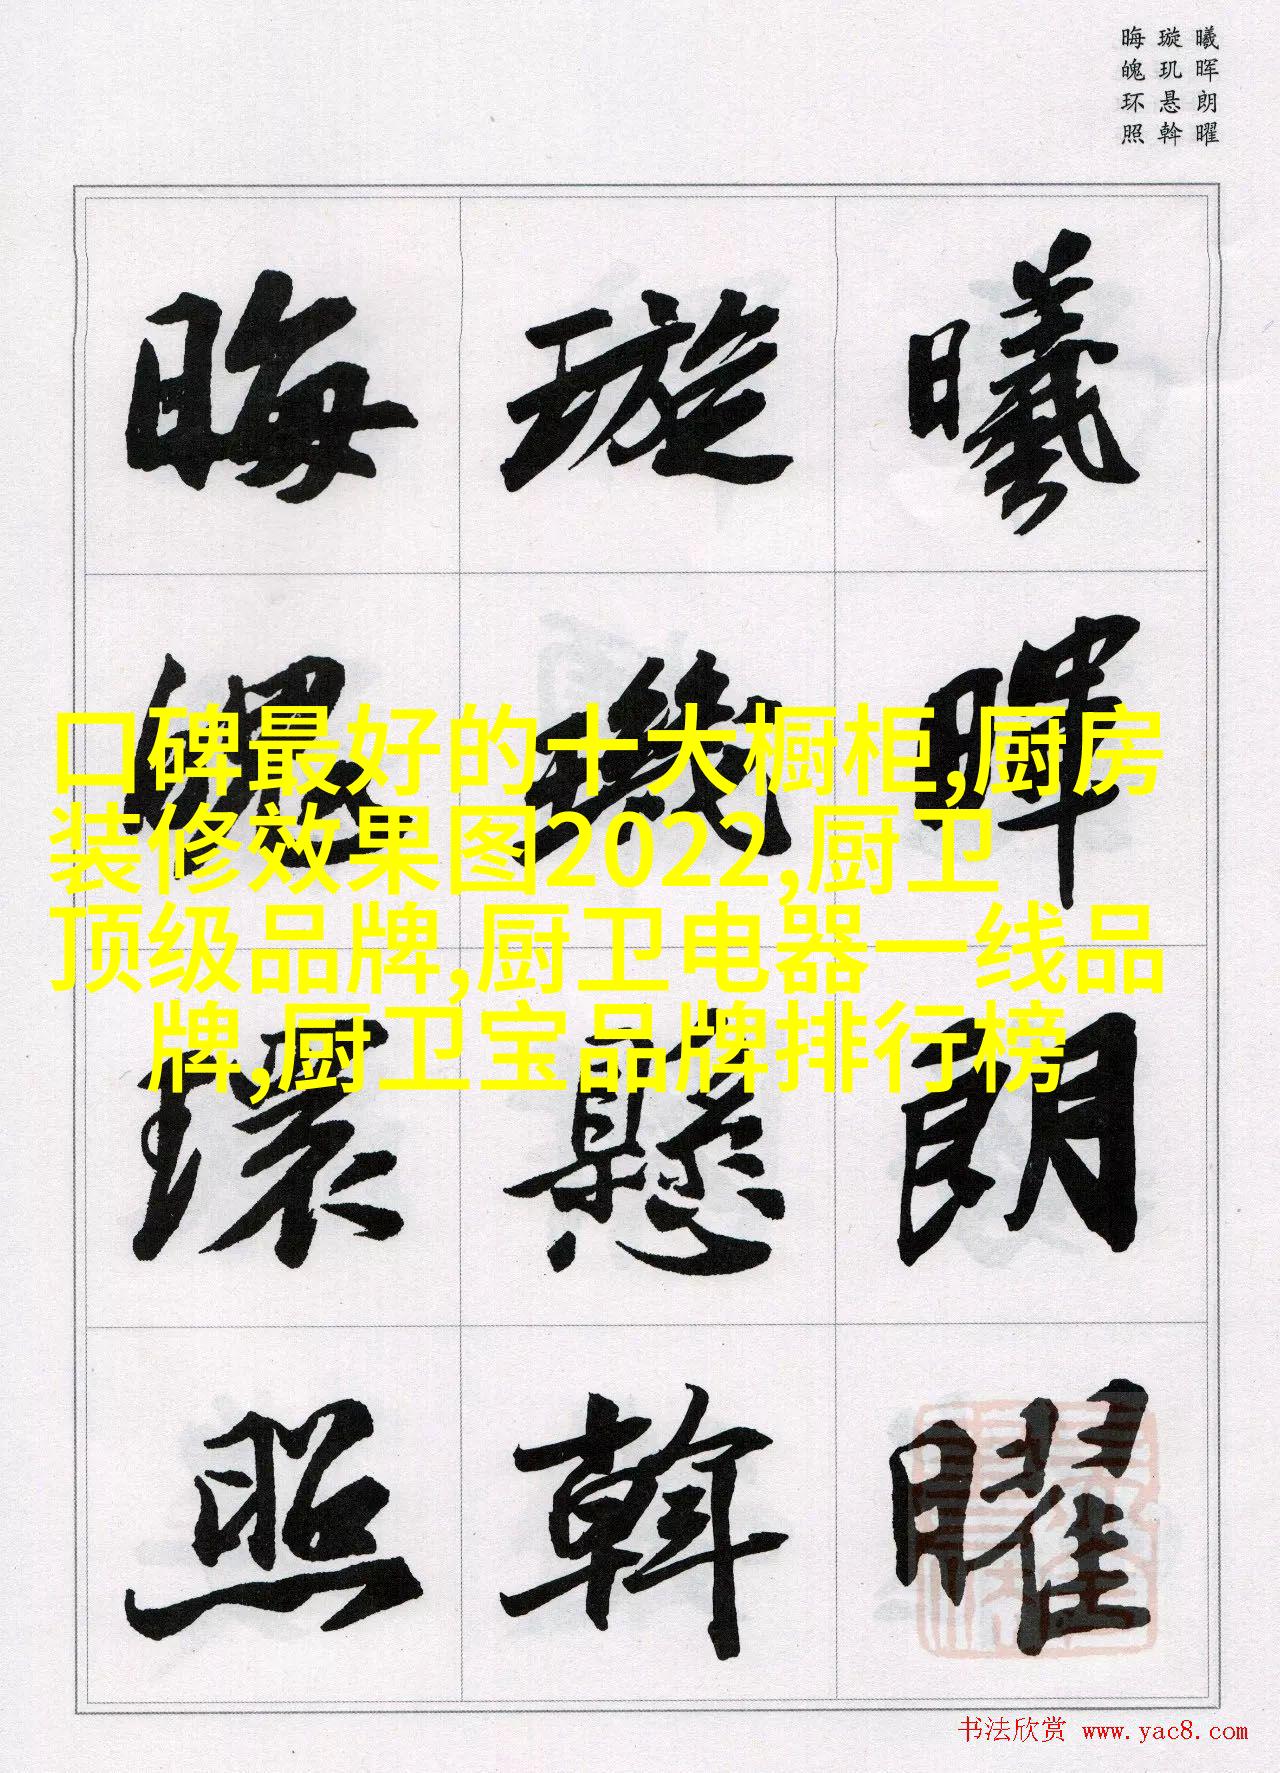 曦晖朗曜
璇玑悬斡
晦魄环照
曦暉朗曜
璇璣懸斡
晦魄環照
口碑最好的十大橱柜,厨房
装修效果图2022,厨卫
顶级品牌,厨卫电器一线品
牌,厨卫宝品牌排行榜
书法欣赏 www.yac8.com